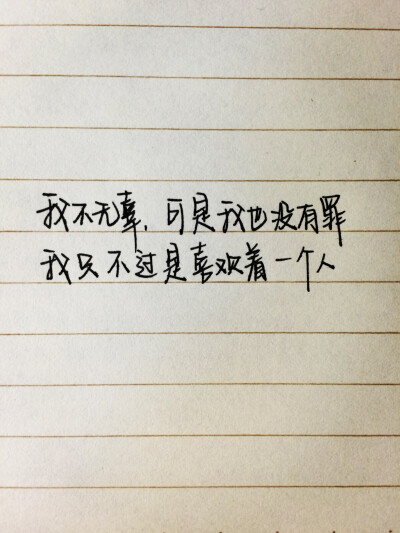 我不无辜，可是我也没有罪
我只不过是喜欢着一个人